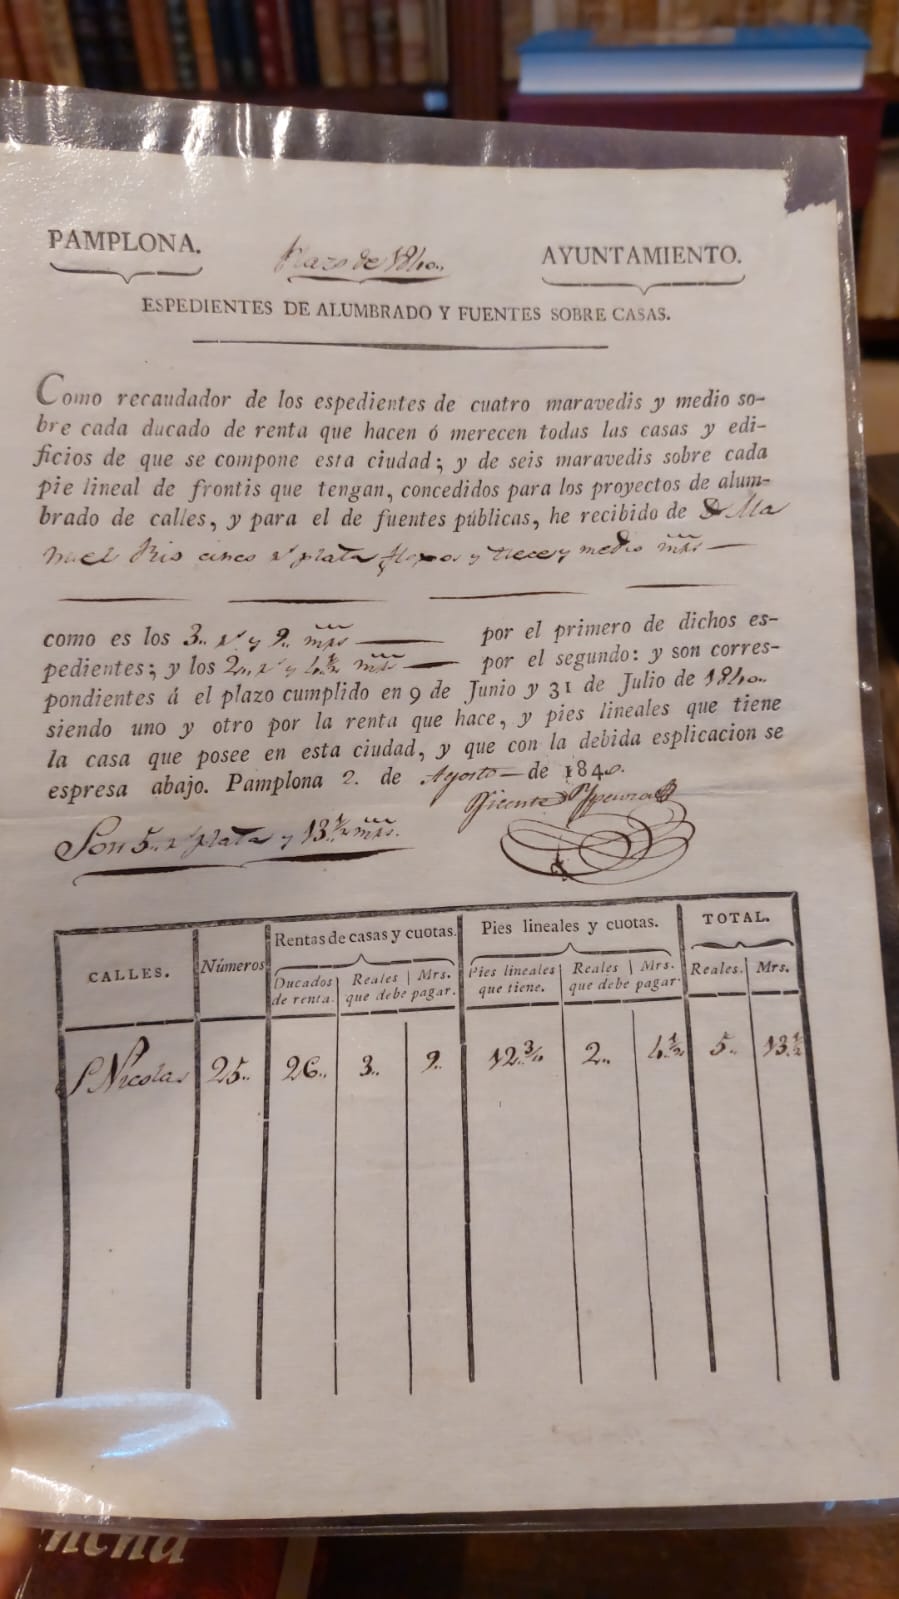 PAMPLONA.
Plazo de 1840..
AYUNTAMIENTO.
ESPEDIENTES DE ALUMBRADO Y FUENTES SOBRE CASAS.
Como recaudador de los espedientes de cuatro maravedis y medio so-
bre cada ducado de renta que hacen ó merecen todas las casas y edi-
ficios de que se compone esta ciudad; y de seis maravedis sobre cada
pie lineal de frontis que tengan, concedidos para los proyectos de alum-
brado de calles, y para el de fuentes públicas, he recibido de Dn Ma
nuel Rio cinco rs plata y trece y medio mrs
como es los 3.. rs y 9.. mrs por el primero de dichos es-
pedientes; y los 2.. rs y 4 1/2 mrs por el segundo: y son corres-
pondientes á el plazo cumplido en 9 de Junio y 31 de Julio de 1840..
siendo uno y otro por la renta que hace, y pies lineales que tiene
la casa que posee en esta ciudad, y que con la debida esplicacion se
espresa abajo. Pamplona 2. de Agosto de 1840.
Vicente
Son 5.. rs plata y 13 1/2 mrs.
CALLES.
Números
Rentas de casas y cuotas.
Pies lineales y cuotas.
TOTAL.
Ducados de renta.
Reales | Mrs. que debe pagar.
Pies lineales que tiene.
Reales | Mrs. que debe pagar.
Reales.
Mrs.
S Nicolas 25.. 26.. 3.. 9.. 12 3/4 2.. 4 1/2 5.. 13 1/2